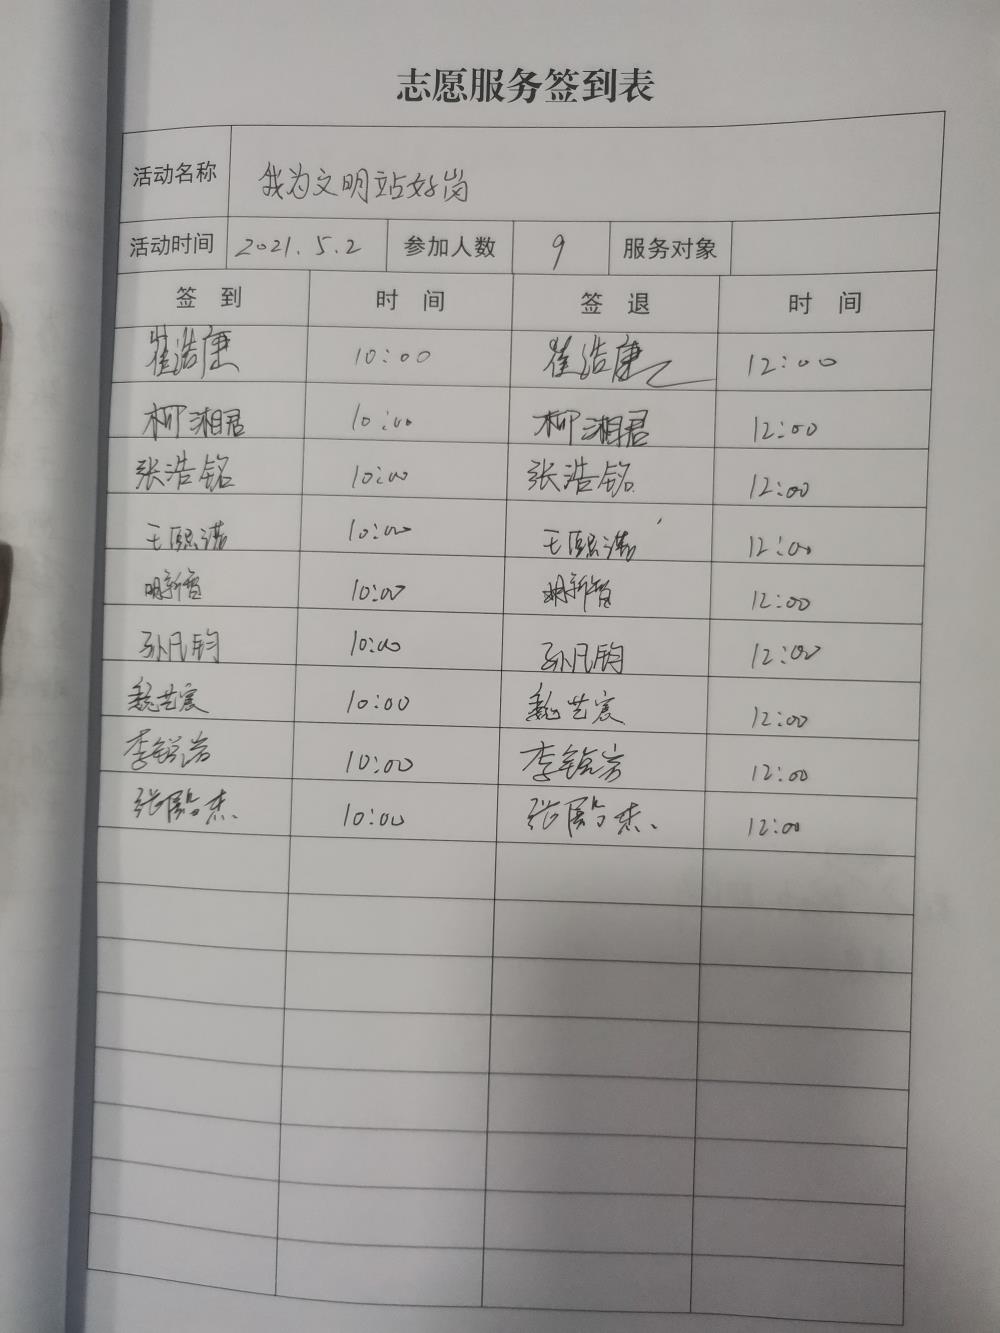 志愿服务签到表
活动名称 我为文明站好岗
活动时间 2021.5.2 参加人数 9 服务对象
签到 时间 签退 时间
崔浩康 10:00 崔浩康 12:00
柳湘君 10:00 柳湘君 12:00
张浩铭 10:00 张浩铭 12:00
王熙湛 10:00 王熙湛 12:00
明新智 10:00 明新智 12:00
孙凡钧 10:00 孙凡钧 12:00
魏艺宸 10:00 魏艺宸 12:00
李锐 10:00 李锐 12:00
张 杰 10:00 张 杰 12:00